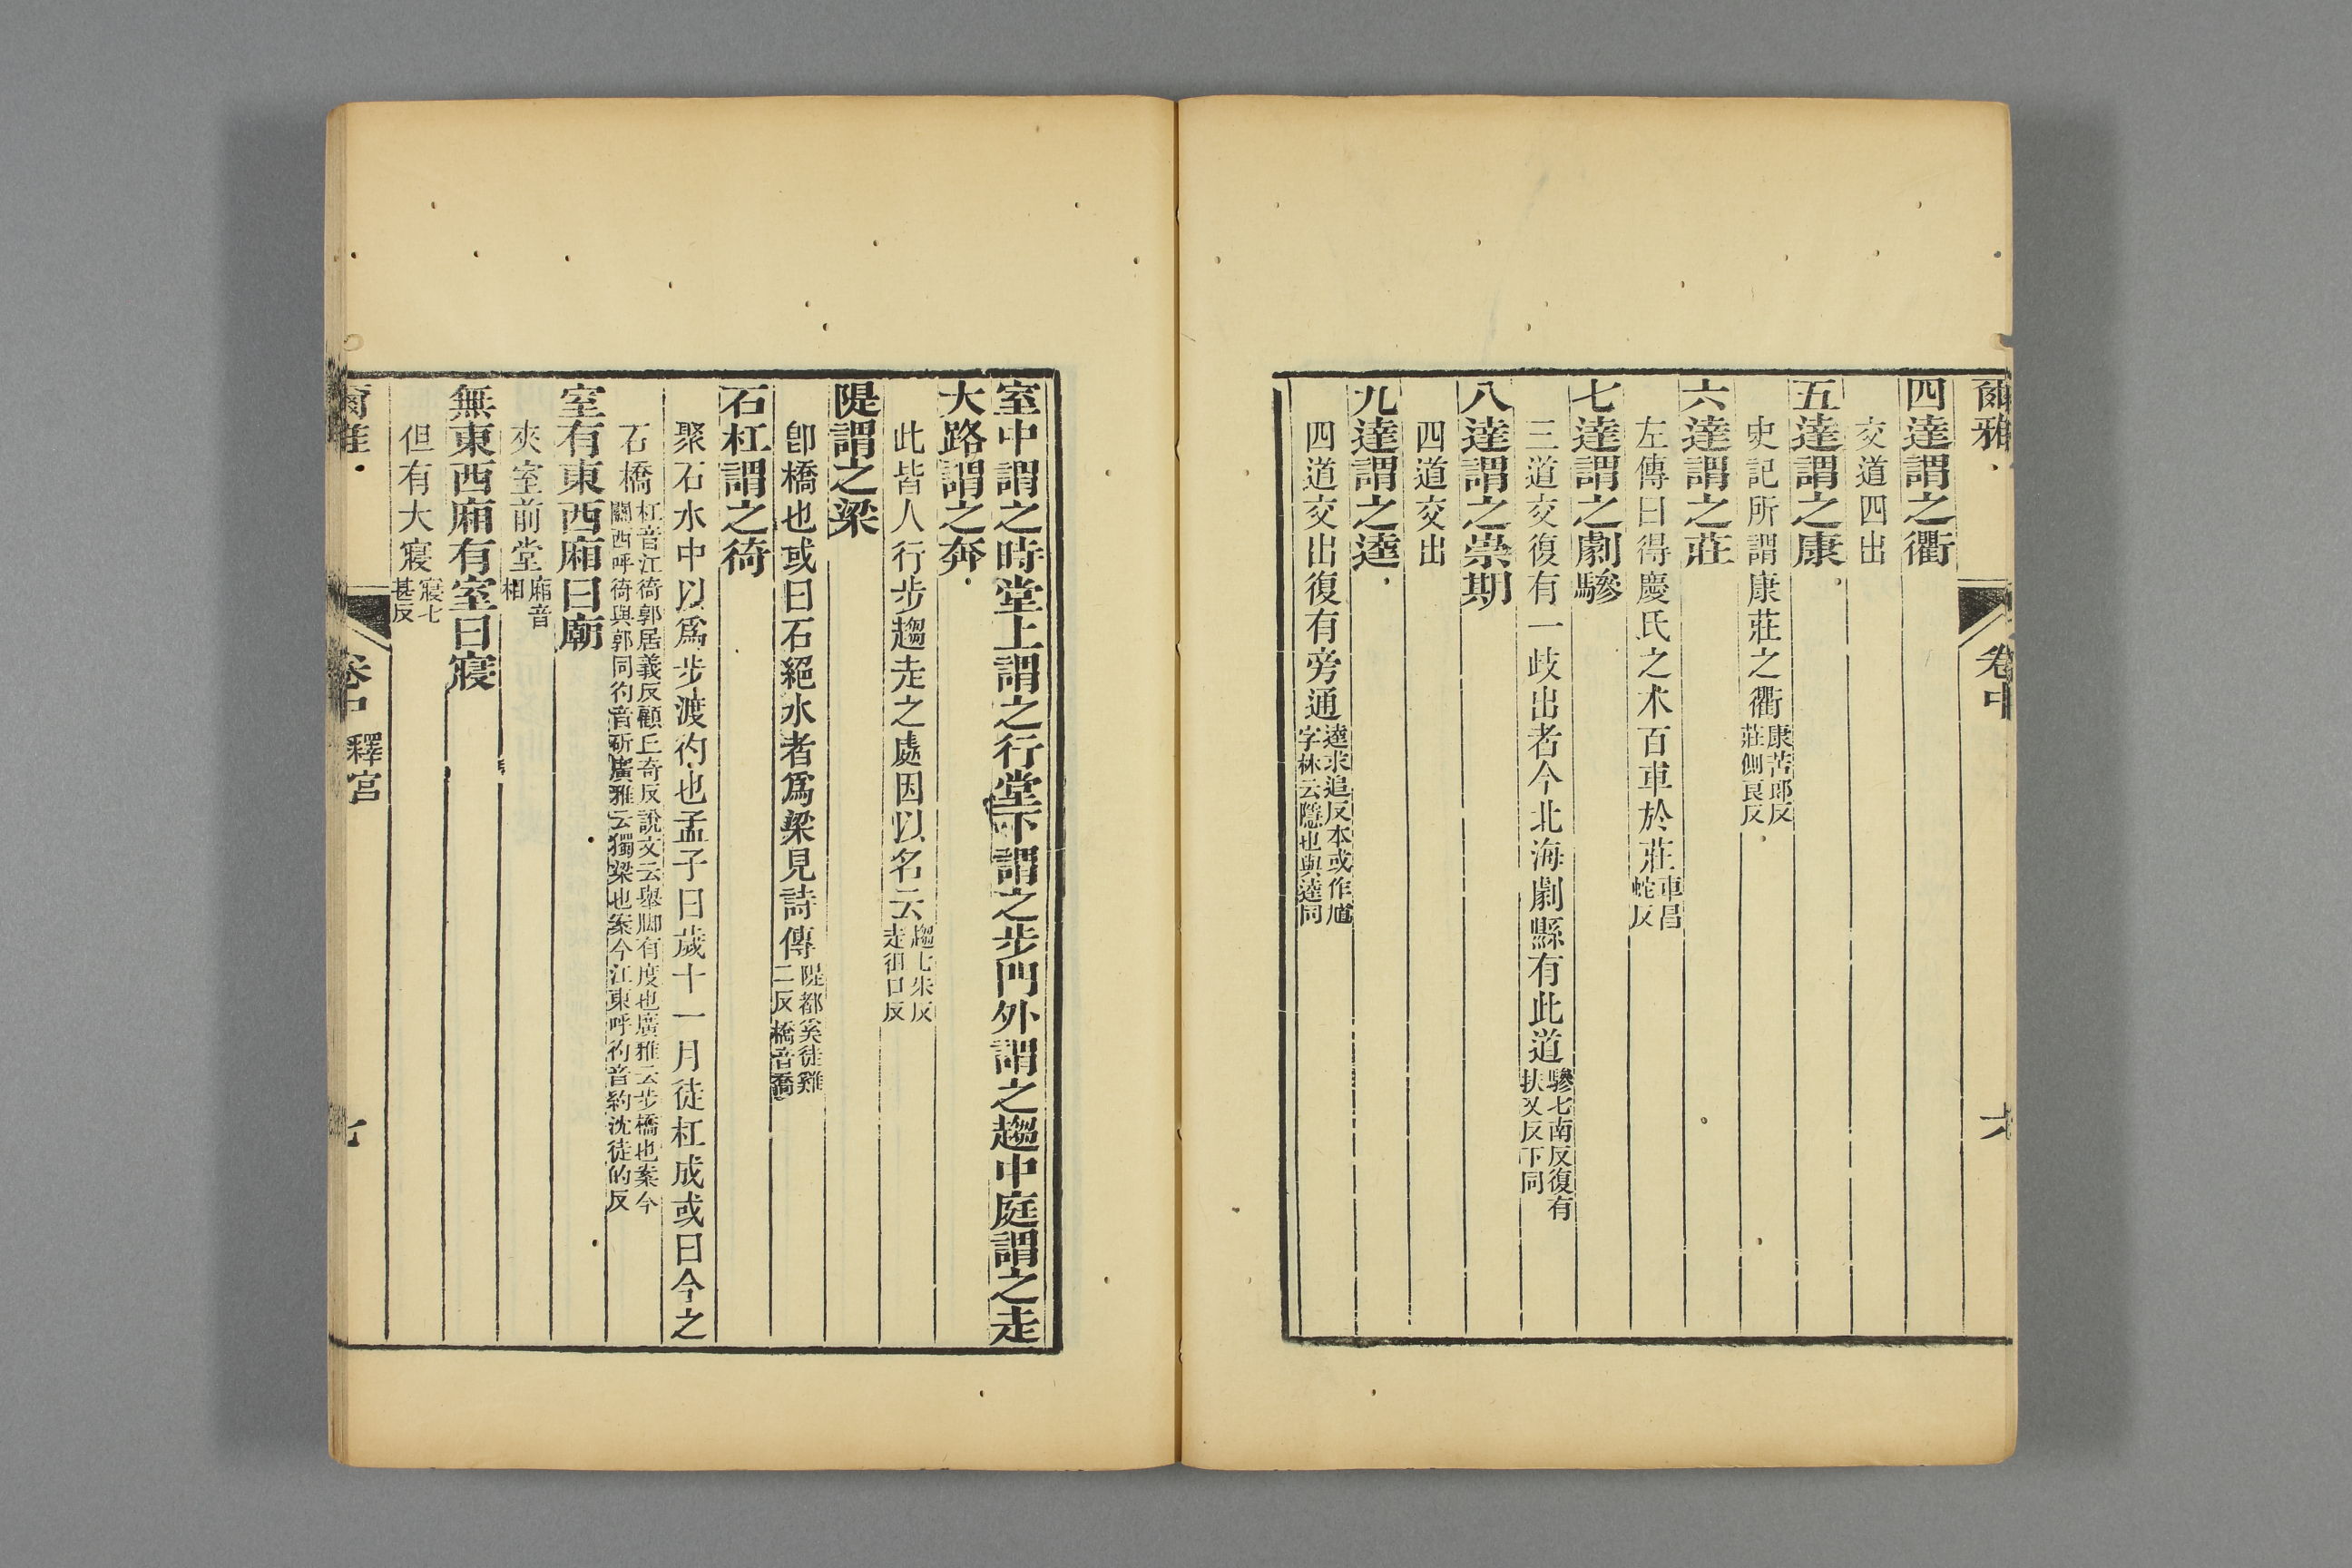 爾雅
卷中
六
四達謂之衢
交道四出
五達謂之康
史記所謂康莊之衢康苦郎反莊側良反
六達謂之莊
左傳曰得慶氏之木百車於莊車昌蛇反
七達謂之劇驂
三道交復有一歧出者今北海劇縣有此道驂七南反復有扶又反下同
八達謂之崇期
四道交出
九達謂之逵
四道交出復有旁通逵求追反本或作馗字林云隱也與逵同
室中謂之時堂上謂之行堂下謂之步門外謂之趨中庭謂之走
大路謂之奔
此皆人行步趨走之處因以名云趨七朱反走徂口反
隄謂之梁
卽橋也或曰石絕水者爲梁見詩傳隄都奚徒雞二反橋音喬
石杠謂之徛
聚石水中以爲步渡彴也孟子曰歲十一月徒杠成或曰今之
石橋杠音江徛郭居義反顧丘奇反說文云舉脚有度也廣雅云步橋也案今關西呼徛與郭同彴音斫廣雅云獨梁也案今江東呼彴音約沈徒的反
室有東西廂曰廟
夾室前堂廂音相
無東西廂有室曰寢
但有大寢寢七甚反
爾雅
卷中 釋宮
七